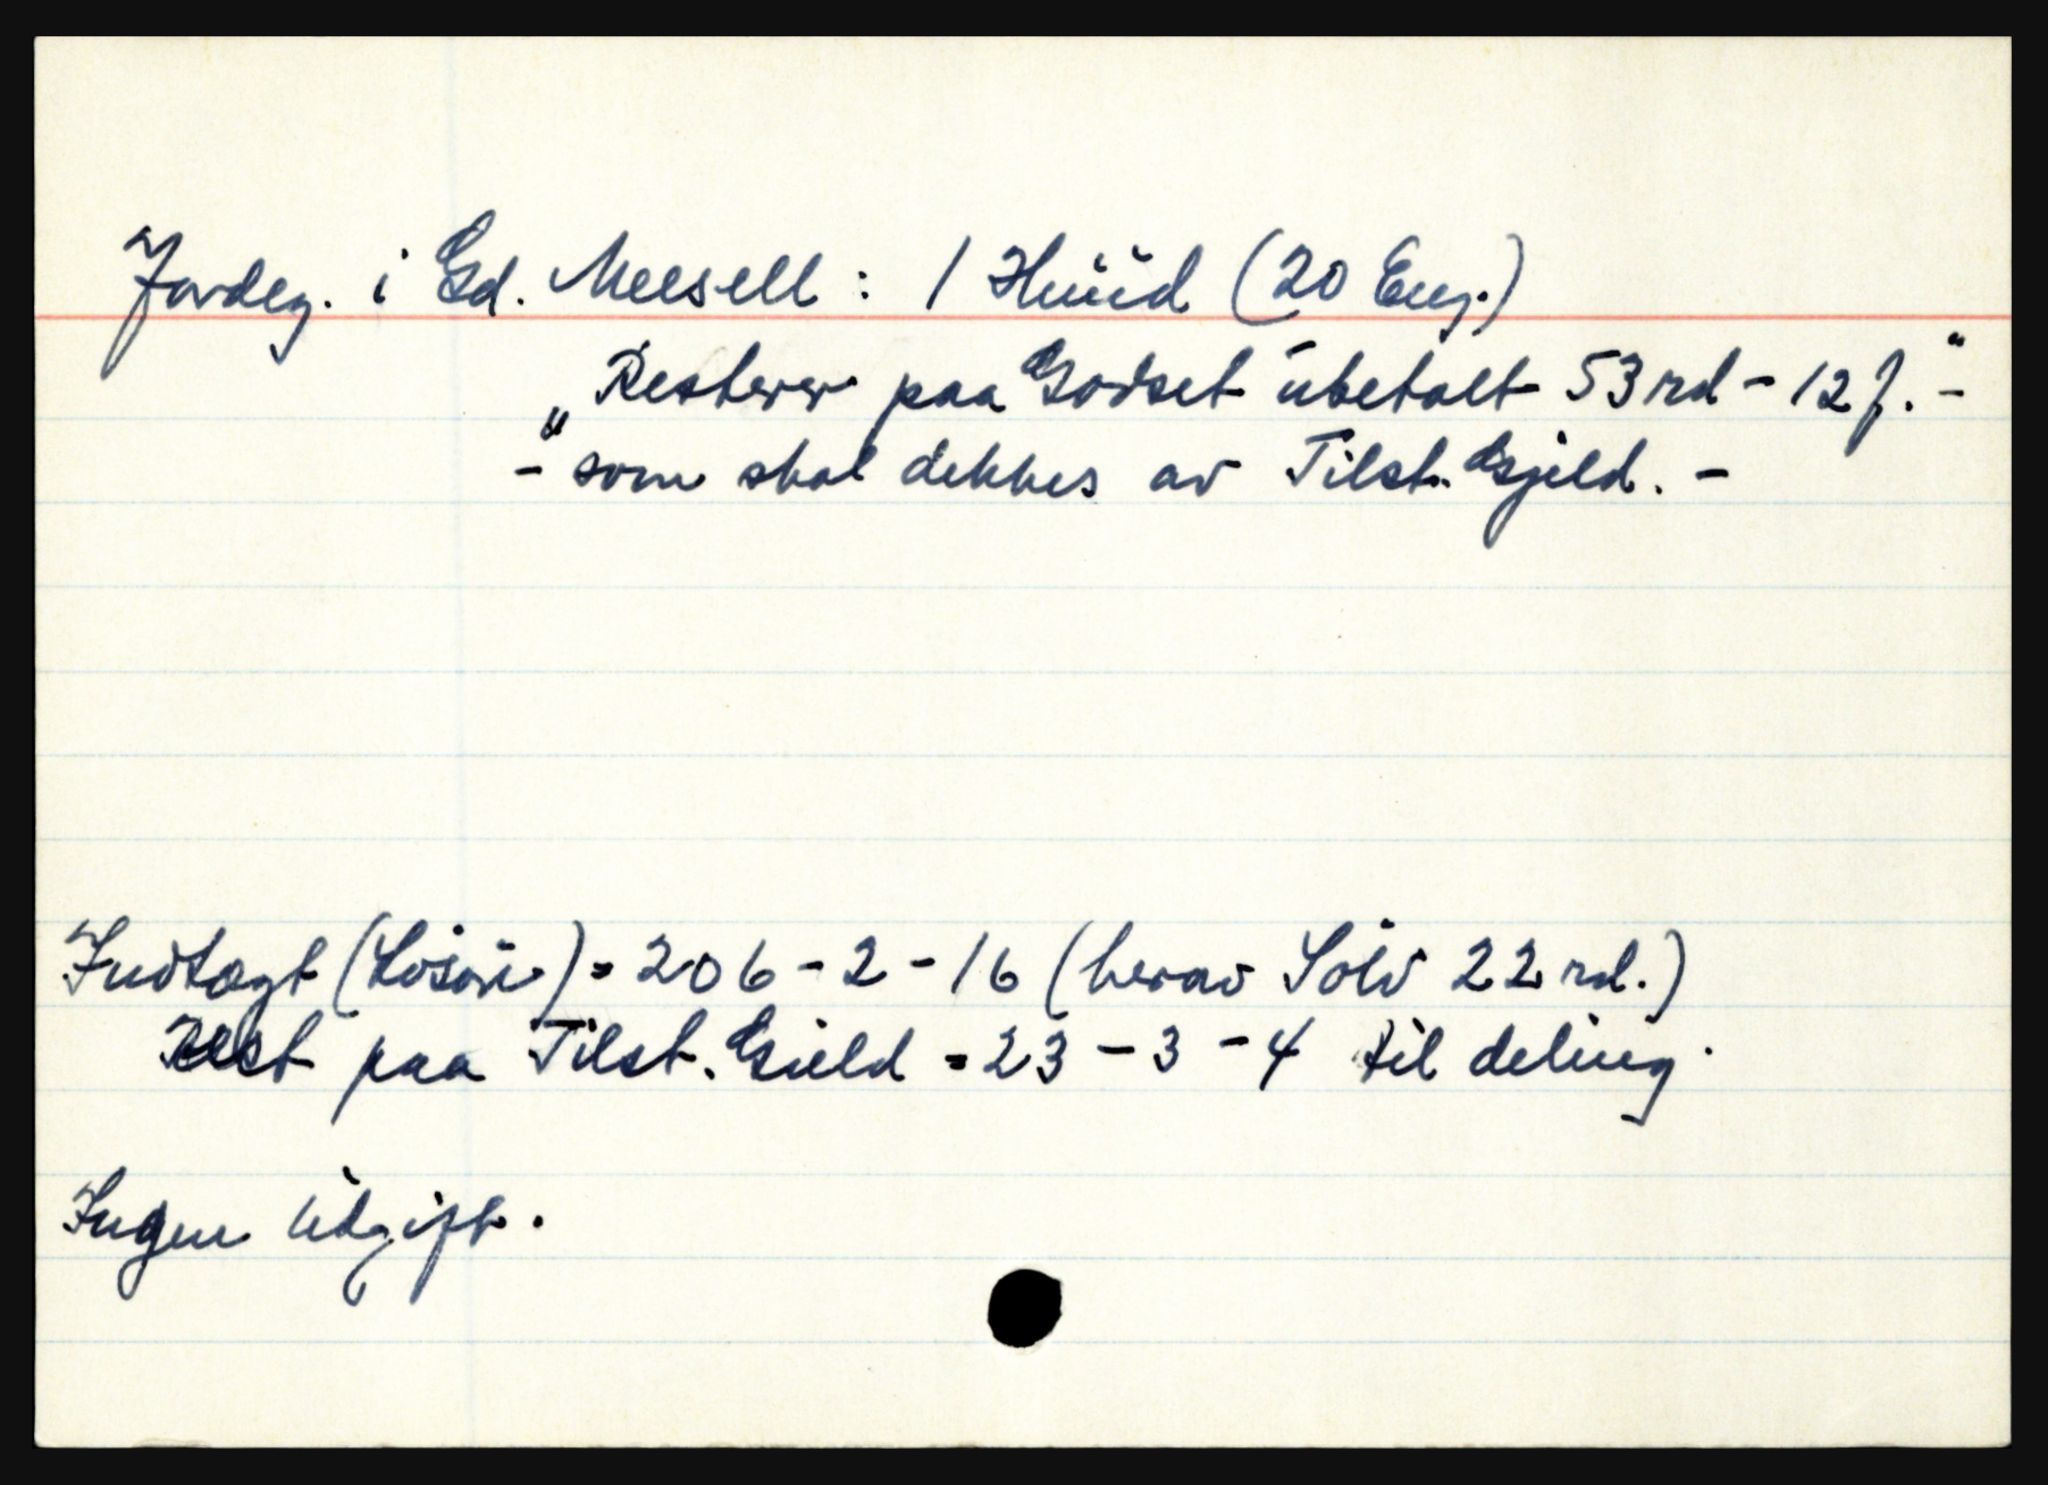 Jordeg. i Gd. Meesell : 1 Huud (20 Eng.)
„Resterer paa Godset ubetalt 53 rd - 12 f. -"
- "som skal dekkes av Tilst. Gjeld. -
Indtægt (Løsøre) = 206 - 2 - 16 (herav Sølv 22 rd.)
Rest paa Tilst. Gield = 23 - 3 - 4 til deling.
Ingen Udgift.